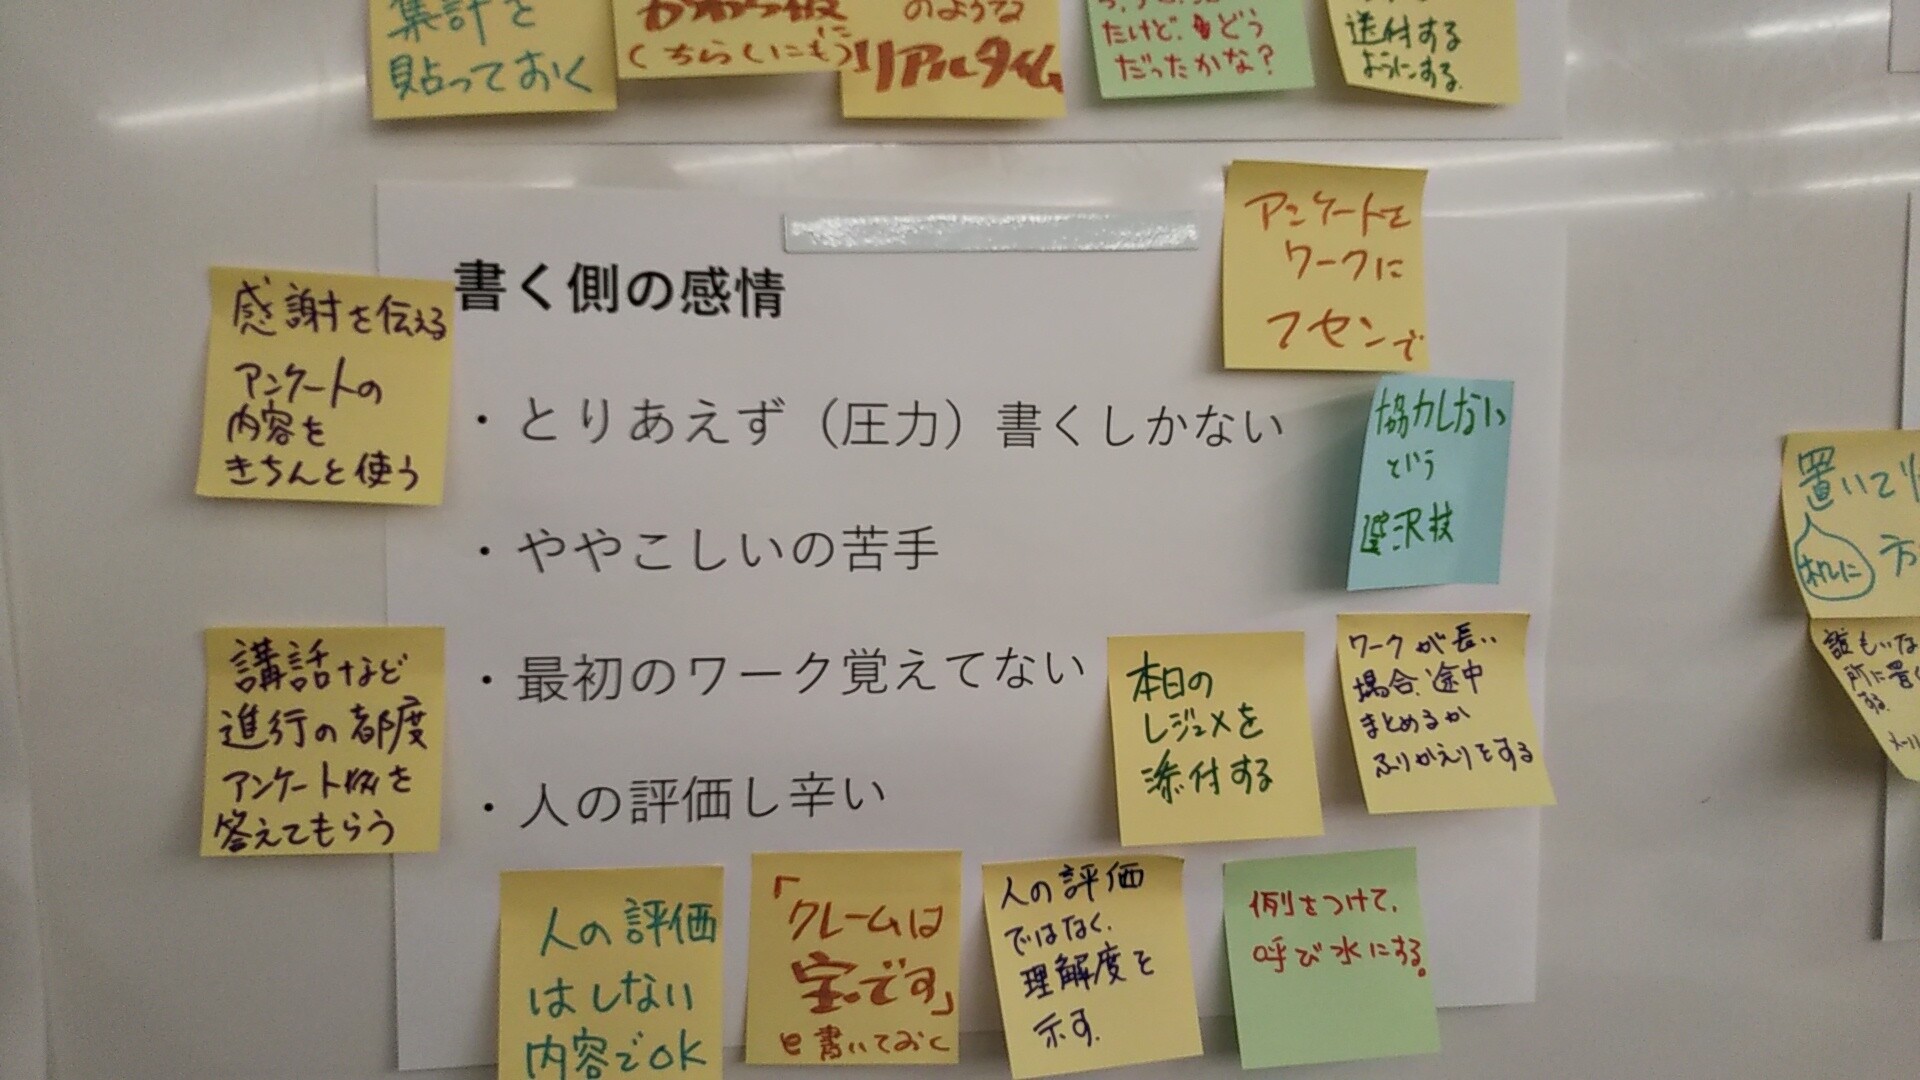 集計を
貼っておく
かわら版
(ちらしにもう)
のような
リアルタイム
たけど、どう
だったかな?
送付する
ようにする。
アンケートを
ワークに
フセンで
感謝を伝える
アンケートの
内容を
きちんと使う
書く側の感情
・とりあえず(圧力)書くしかない
・ややこしいの苦手
・最初のワーク覚えてない
・人の評価し辛い
協力しない
という
選択枝
講話など
進行の都度
アンケート
答えてもらう
本日の
レジュメを
添付する
ワークが長い
場合、途中
まとめるか
ふりかえりをする
人の評価
はしない
内容でOK
「クレームは
宝です」
と書いておく
人の評価
ではなく、
理解度を
示す。
例をつけて、
呼び水にする。
置いて
机に
方
誰もいな
所に置く
する
メール